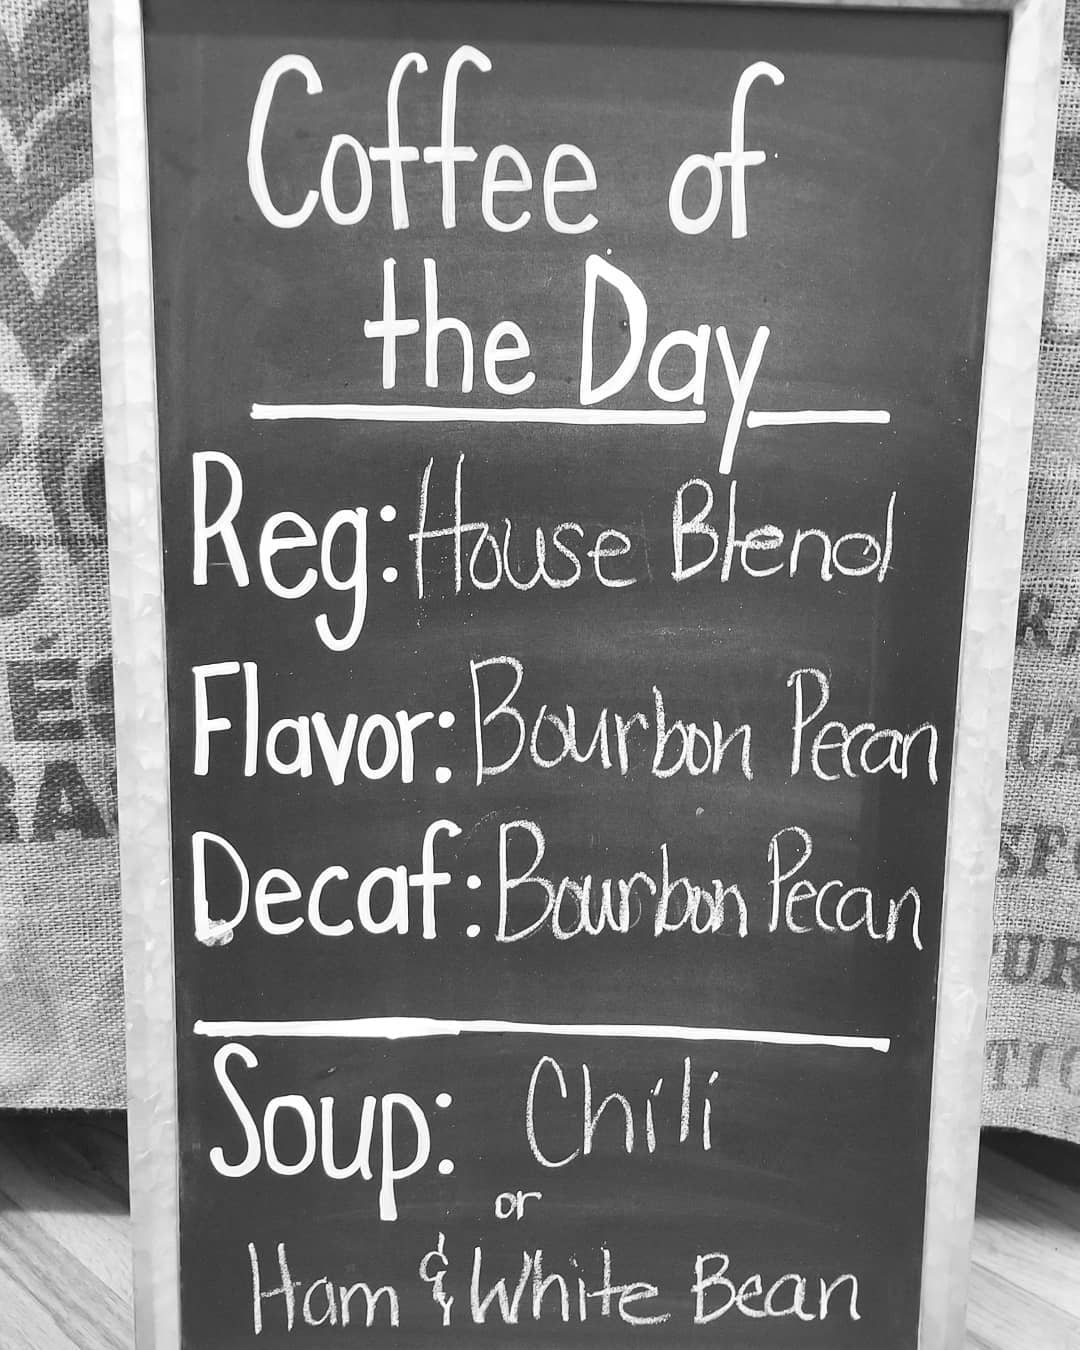 Coffee of
the Day
Reg: House Blend
Flavor: Bourbon Pecan
Decaf: Bourbon Pecan
Soup: Chili
or
Ham & White Bean